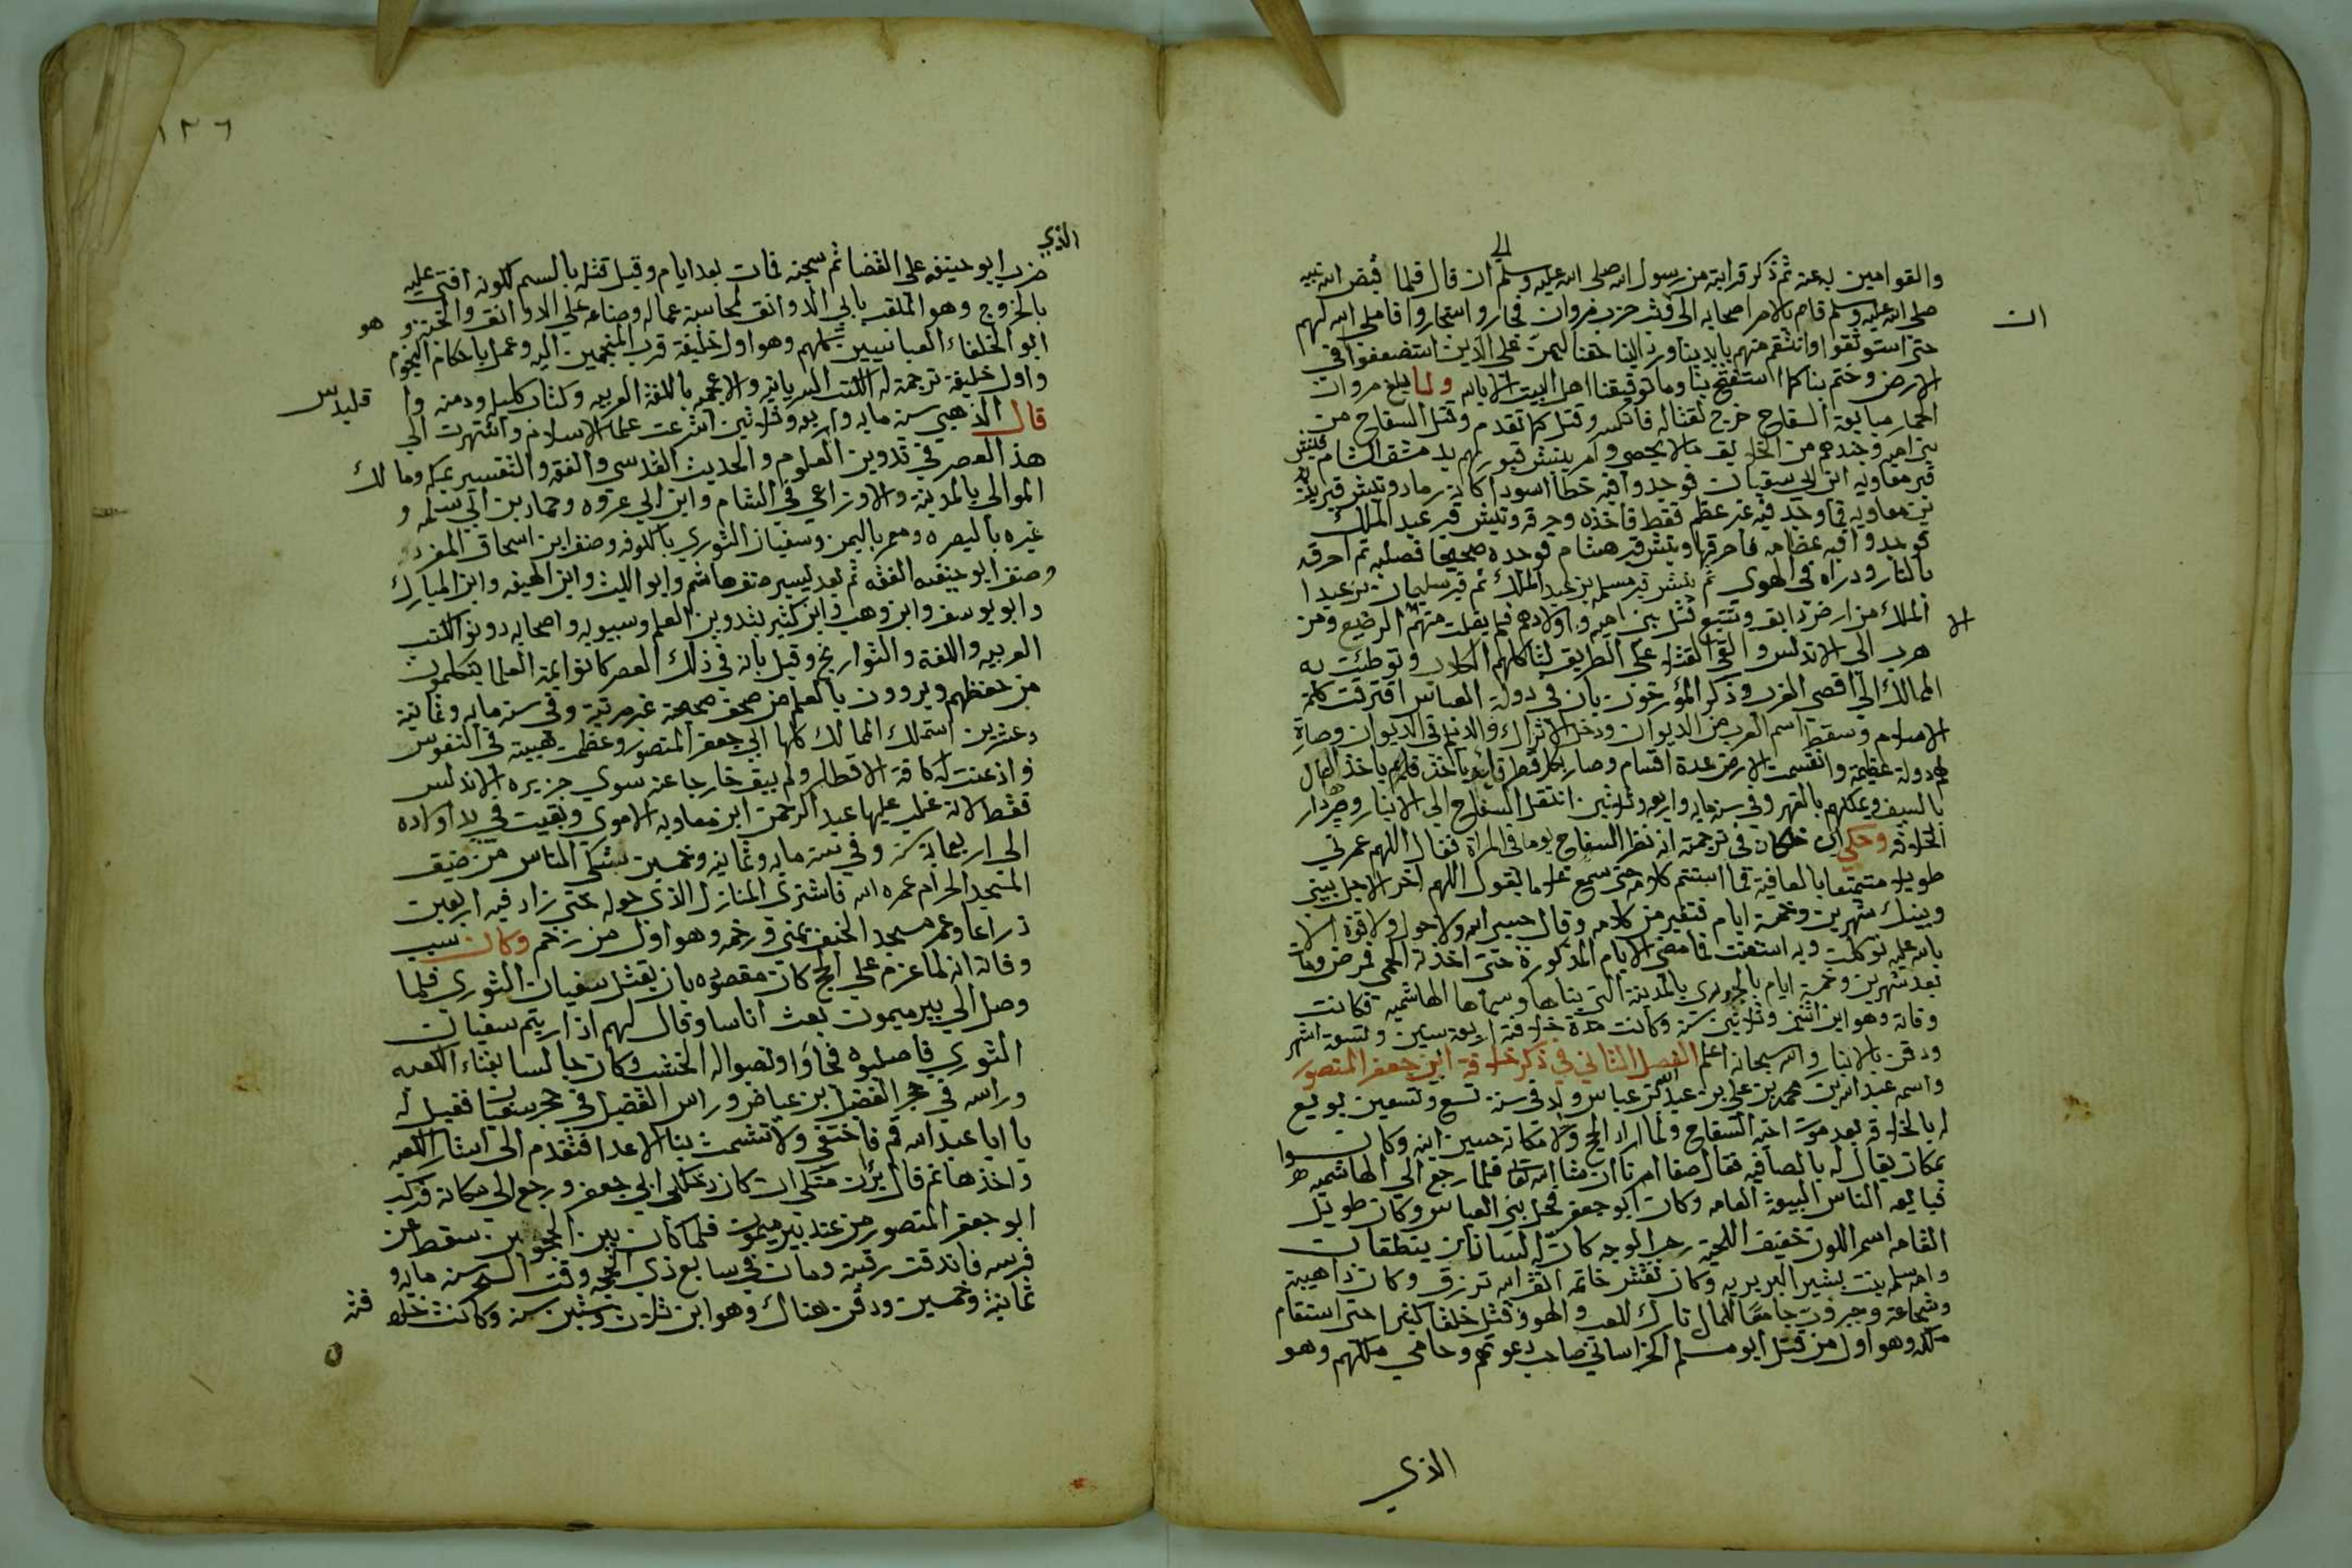 والقوامين به عنه ثم ذكر قرابة من رسول الله صلى الله عليه وسلم الى ان قال فلما قبض الله نبيه
صلى الله عليه وسلم قام بالامر اصحابه الى وثب حرب ومروان فجاروا واستجاروا فاملى الله لهم
ان
حتى استوثقوا وانتقم منهم بايدينا ورد الينا حقنا ليمن على الذين استضعفوا في
الارض وختم بنا كما استفتح بنا وما توفيقنا اهل البيت الا بالله ولما بلغ مروان
الحمار مبايعة السفاح خرج لقتاله فانكسر وقتل كما تقدم وقتل السفاح من
بني اميه وجندهم من الخلايق مالا يحصى وامر بنبش قبورهم بدمشق الشام فنبش
قبر معاويه ابن ابي سفيان فوجدوا فيه خطا اسودا كانه رماد ونبش قبر يزيد
بن معاويه فما وجد فيه غير عظم فقط فاخذه وحرقه ونبش قبر عبد الملك
فوجدوا فيه عظامه فاحرقها ونبش قبر هشام فوجده صحيحا فصلبه ثم احرقه
بالنار ودراه في الهوى ثم نبش قبر مسلمه بن عبد الملك ثم قبر سليمان بن عبد ا
الملك من ارض دابق وتتبع قتل بني اميه واولادهم فلم يفلت منهم الا الرضيع ومن
هرب الى الاندلس والقى القتلى على الطريق لتاكلهم الكلاب وتوطئت به
الممالك الى اقصى الغرب وذكر المؤرخون بان في دولة العباس افترقت كلمة
الاسلام وسقط اسم العرب من الديوان ودخل الاتراك والديلم في الديوان وصارة
لهم دولة عظيمة وانقسمت الارض عدة اقسام وصار بكل قطر قايم ياخذ قلم ياخذ المال
بالسيف ويملكهم بالقهر وفي سنة مايه واربعه وثلاثين انتقل السفاح الى الانبار وصيرها دار
الخلافه وحكي ابن خلكان في ترجمته انه نظر السفاح يوما في المراة فقال اللهم عمرني
طويلا متمتعا بالعافية فما استتم كلامه حتى سمع غلاما يقول اللهم اخر الاجل بيني
وبينك شهرين وخمسة ايام فتغير من كلامه وقال حسبي الله ولا حول ولا قوة الا
بالله عليه توكلت وبه استعنت فما مضى الايام المذكورة حتى اخذته الحمى فمرض ومات
بعد شهرين وخمسة ايام بالجدري بالمدينة التي بناها وسماها الهاشميه فكانت
وفاته وهو ابن اثنين وثلاثين سنة وكانت مدة خلافته اربعة سنين وتسعة اشهر
ودفن بالانبار والله سبحانه اعلم الفصل الثاني في ذكر خلافة ابي جعفر المنصور
واسمه عبد الله بن محمد بن علي بن عبد الله بن عباس ولد في سنة تسع وتسعين بويع
له بالخلافه بعد موت اخيه السفاح ولما اراد الحج ولا مكانه حسين ابنه وكانوا
بمكان يقال له بالصافيه فقال صفا امرنا ان شا الله تعالى فلما رجع الى الهاشميه
فبايعه الناس البيعة العامه وكان ابو جعفر فحل بني العباس وكان طويل
القامه اسمر اللون خفيف اللحية رحب الوجه كان له لسانان ينطقان
وامه سلمه بنت بشير البربريه وكان نقش خاتمه اتق الله ترزق وكان ذا هيبة
وشجاعة وجبروت جامعا للمال تارك للعب والهو وقتل خلقا كثيرا حتى استقام
ملكه وهو اول من قتل ابو مسلم الخراساني صاحب دعوتهم وحامي ملكهم وهو
الذي
١٢٦
الذي
ضرب ابو حنيفه على القضا ثم سجنه فمات بعد ايام وقيل قتله بالسم لكونه افتى عليه
بالخروج وهو الملقب بابي الدوانق لمحاسبة عماله وصناعه على الدوانق والحبة وهو
ابو الخلفاء العباسيين كلهم وهو اول خليفة قرب المنجمين اليه وعمل باحكام النجوم
واول خليفة ترجمة له الكتب السريانيه والاعجميه باللغة العربيه وكتاب كليله ودمنه وا قليدس
قال الذهبي سنة مايه واربعه وثلاثين اشرعت علما الاسلام واشتهرت الى
هذا العصر في تدوين العلوم والحديث القدسي والفقه والتفسير بمكه ومالك
الموالي بالمدينة والاوزاعي في الشام وابن ابي عروه وحماد بن ابي سلمه و
غيره بالبصره ومعمر باليمن وسفيان الثوري بالكوفه وصنف ابن اسحاق المغزى
وصنف ابو حنيفه الفقه ثم بعد يسير صنف هاشم وابو الليث وابن الهيفه وابن المبارك
وابو يوسف وابن وهب وابن كثير بتدوين العلم وسيبويه واصحابه دونو الكتب
العربيه واللغة والتواريخ وقيل بانه في ذلك العصر كانوا يمة العلما يتكلمون
من حفظهم ويروون بالعلم من صحف صحيحة غير مرتبة وفي سنة مايه وثمانية
وعشرين استملك الممالك كلها ابي جعفر المنصور وعظمت هيبته في النفوس
واذعنت له كافة الاقطار ولم يبق خارجا عنه سوى جزيره الاندلس
فقط لانه غلب عليها عبد الرحمن ابن معاويه الاموي وبقيت في يد اولاده
الى اربعماية سنة وفي سنة مايه وثمانيه وخمسين شكى الناس من ضيق
المسجد الحرام عمره الله فاشترى المنازل الذي حوله حتى زاد فيه اربعين
ذراعا وعمر مسجد الخيف بمنى ورخمه وهو اول من رخم وكان سبب
وفاته انه لما عزم على الحج كان مقصوده بان يقتل سفيان الثوري فلما
وصل الى بير ميمون بعث اناسا وقال لهم اذا ريتم سفيان
الثوري فاصلبوه فجاؤا ونصبوا له الخشب وكان جالسا بفناء الكعبه
وراسه في حجر الفضل بن عياض وراس الفضيل في حجر سفيان فقيل له
يا ابا عبد الله قم فاختفي ولا تشمت بنا الاعدا فتقدم الى استار الكعبه
واخذها ثم قال برئت منك ان كان دخلها ابي جعفر ورجع الى مكانه فركب
ابو جعفر المنصور من عند بير ميمون فلما كان بين الحجونين سقط عن
فرسه فاندقت رقبته ومات في سابع ذي الحجه وقت السحر سنة مايه و
ثمانية وخمسين ودفن هناك وهو ابن ثلاث وستين سنة وكانت خلا فته